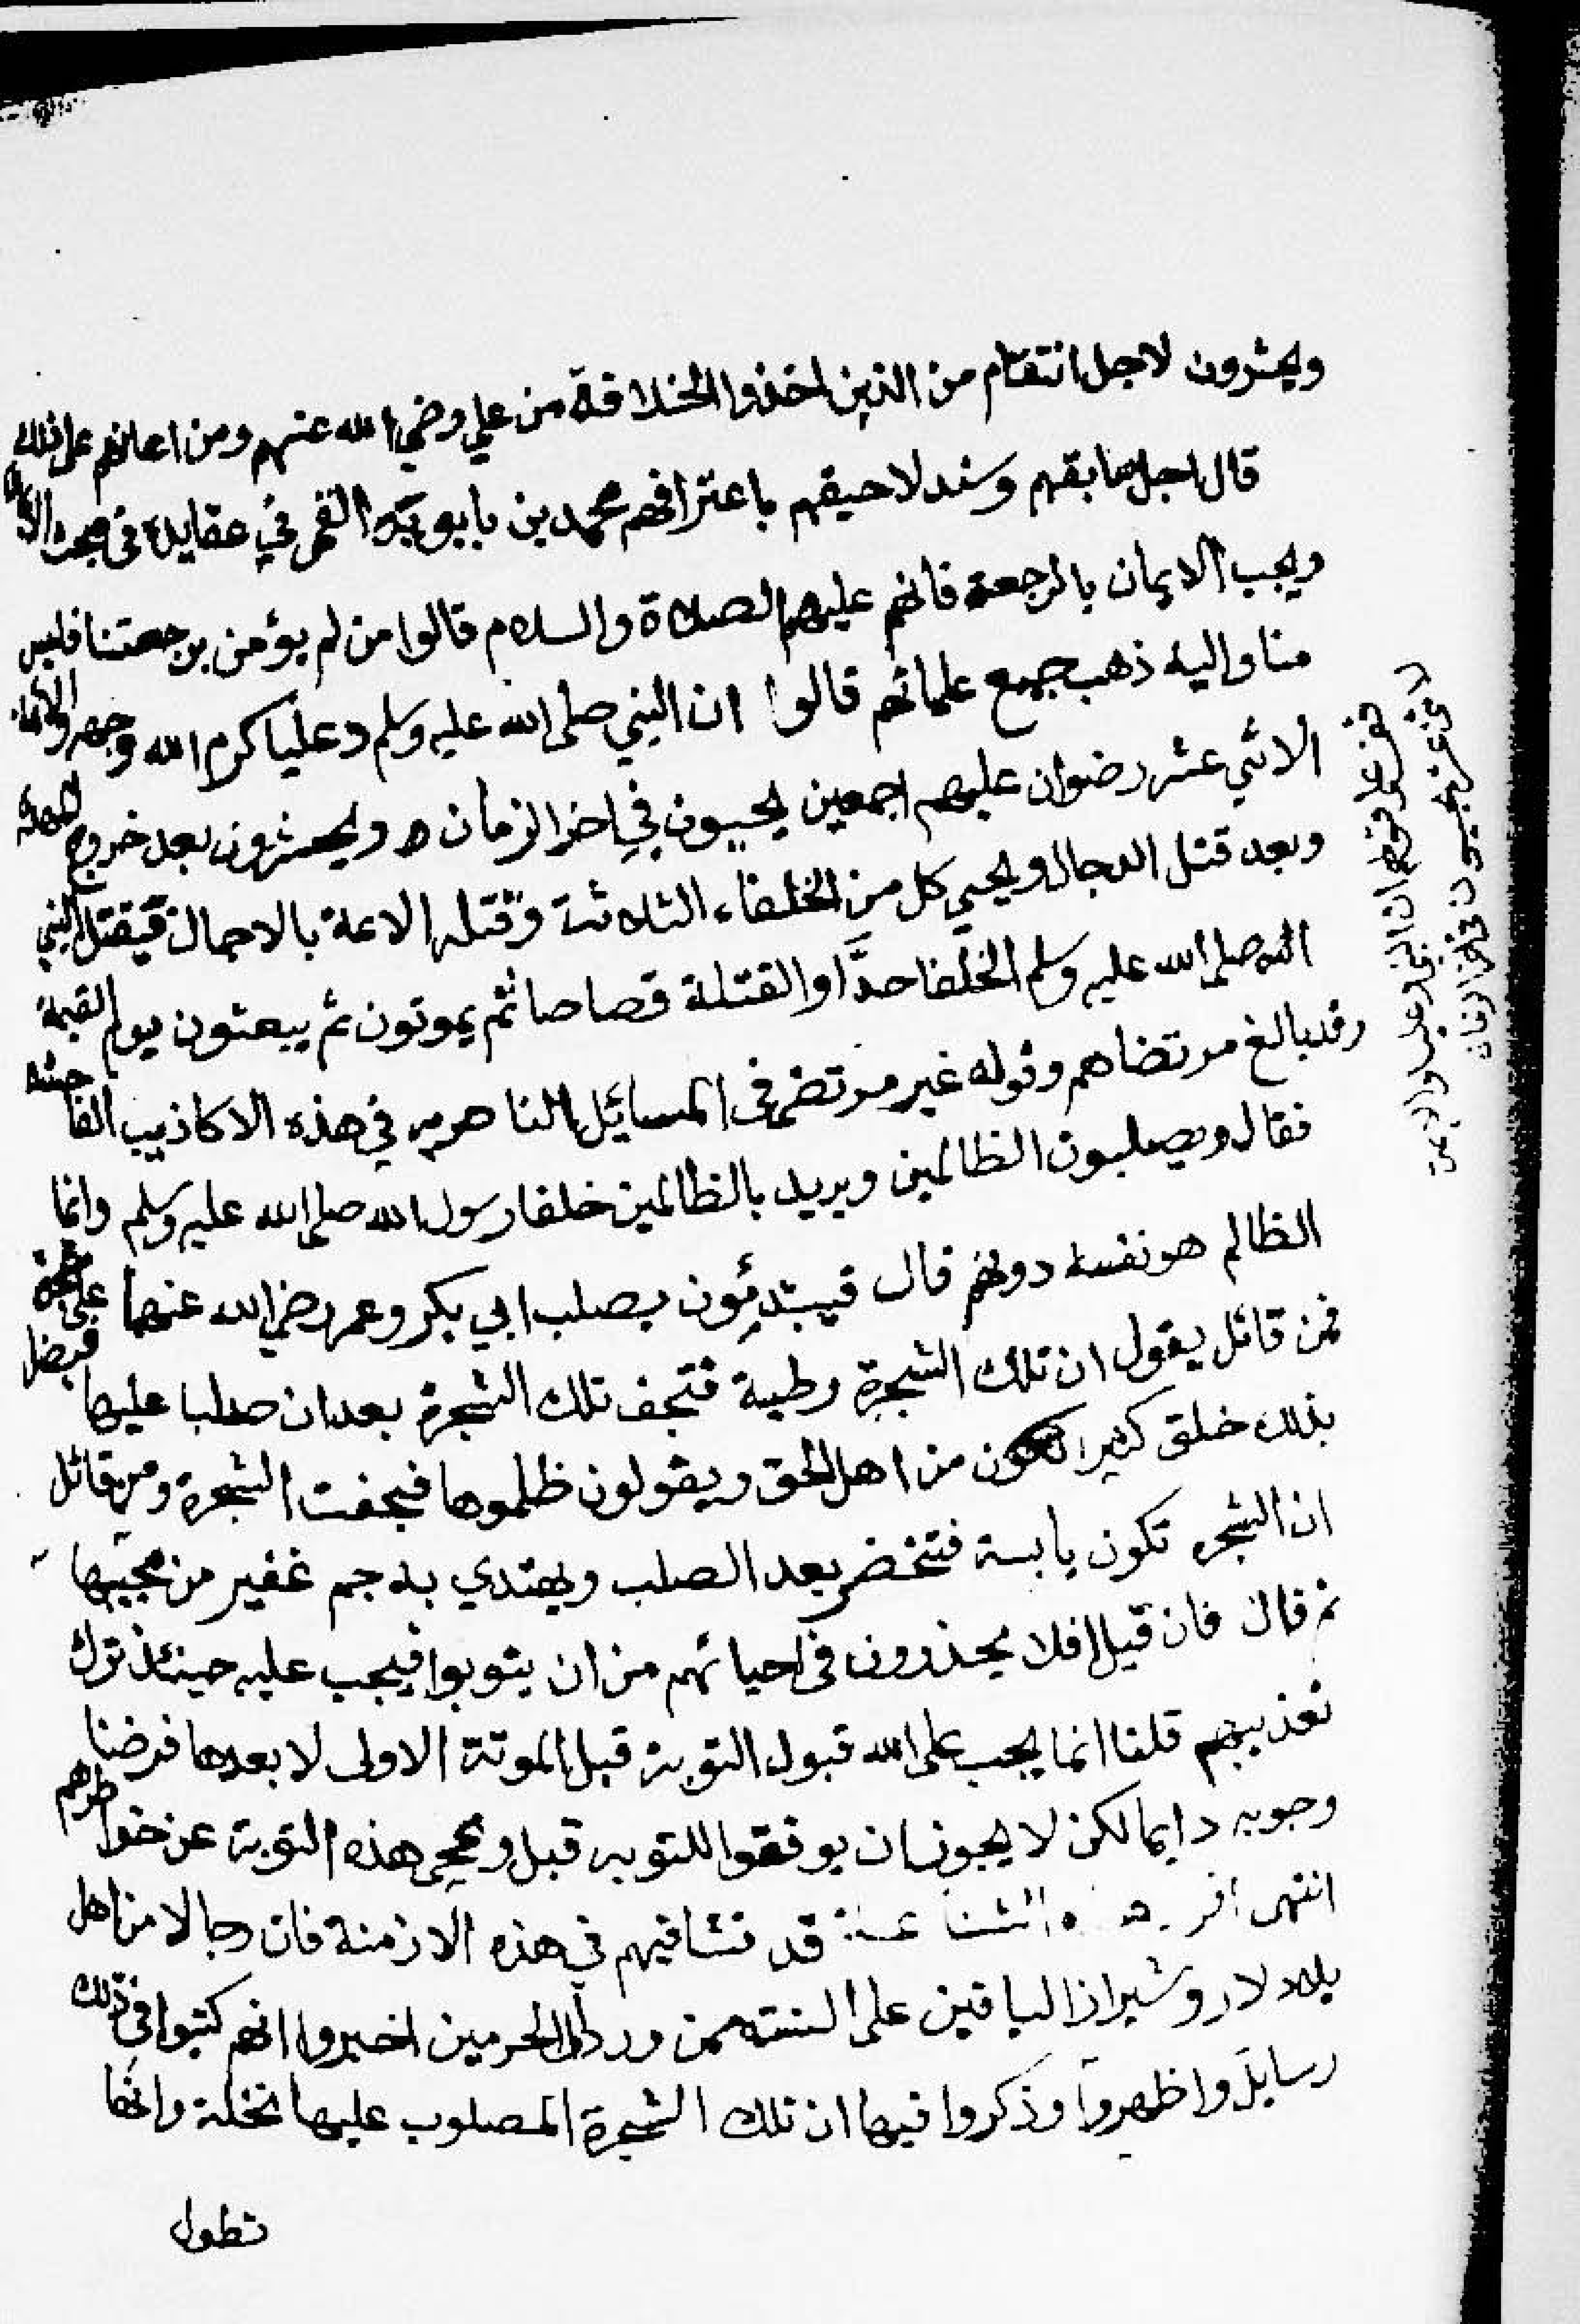 ويحشرون لاجل انتقام من الذين اخذوا الخلافة من علي وضي الله عنهم ومن اعانهم على ذلك
قال اجل سابقهم وسند لاحيقهم باعترافهم محمد بن بابويه القمي في عقايده في مبحث
ويجب الايمان بالرجعة فانهم عليهم الصلاة والسلام قالوا من لم يؤمن برجعتنا فليس
منا واليه ذهب جميع علمائهم قالوا ان النبي صلى الله عليه وسلم وعليا كرم الله وجهه والائمة
الاثني عشر رضوان عليهم اجمعين يحيون في اخر الزمان ويحشرون بعد خروج المهدي
وبعد قتل الدجال ويحيي كل من الخلفاء الثلاثة وقتله الائمة بالاحمال فيقتل النبي
الله صلى الله عليه وسلم الخلفا حدّا والقتلة قصاصا ثم يموتون ثم يبعثون يوم القيمة
وقد بالغ مرتضاهم وقوله غير مرتضى في المسايئل الناصريه في هذه الاكاذيب الفاحشه
فقال ويصلبون الظالمين ويريد بالظالمين خلفا رسول الله صلى الله عليه وسلم وانما
الظالم هو نفسه دونهم قال فيبتدئون بصلب ابي بكر وعمر رضي الله عنهما على شجرة
فمن قائل يقول ان تلك الشجرة رطبة فتجف تلك الشجرة بعد ان صلبا عليها فيضل
بذلك خلق كثير من اهل الحق ويقولون ظلموها فجفت الشجرة ومن قائل
ان الشجره تكون يابسة فتخضر بعد الصلب ويهتدي به جم غفير من محبيها
ثم قال فان قيل افلا يحذرون في احيائهم من ان يتوبوا فيجب عليه حينئذ ترك
تعذيبهم قلنا انما يجب على الله قبول التوبة قبل الموتة الاولى لا بعدها فرضنا
وجوبه دايما لكن لا يجوز ان يوفقوا للتوبه قبل ونمحي هذه التوبة عن خواطرهم
انتهى قد نشا فيهم في هذه الازمنة فان رجالا من اهل
بلاد لار وشيراز الباقين على السنة ممن ورد الى الحرمين اخبروا انهم كتبوا في ذلك
رسايل واظهروا وذكروا فيها ان تلك الشجرة المصلوب عليها نخلة وانها
تطول
قف على قولهم ان النبي وعلي
عشر يحيون في اخر الزمان